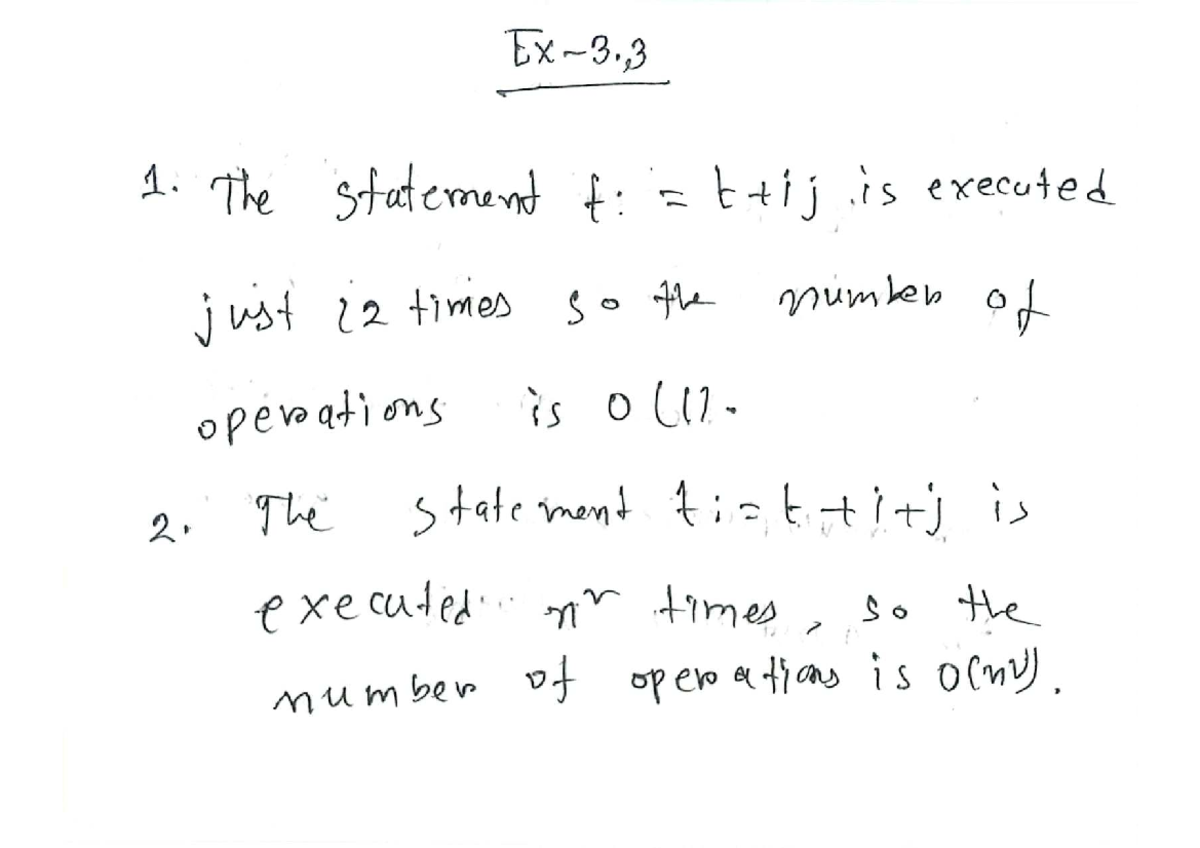 Ex-3.3
1. The statement t: = t+ij is executed
just 12 times so the number of
operations is O(1).
2. The statement t:=t+i+j is
executed n² times, so the
number of operations is O(n²).